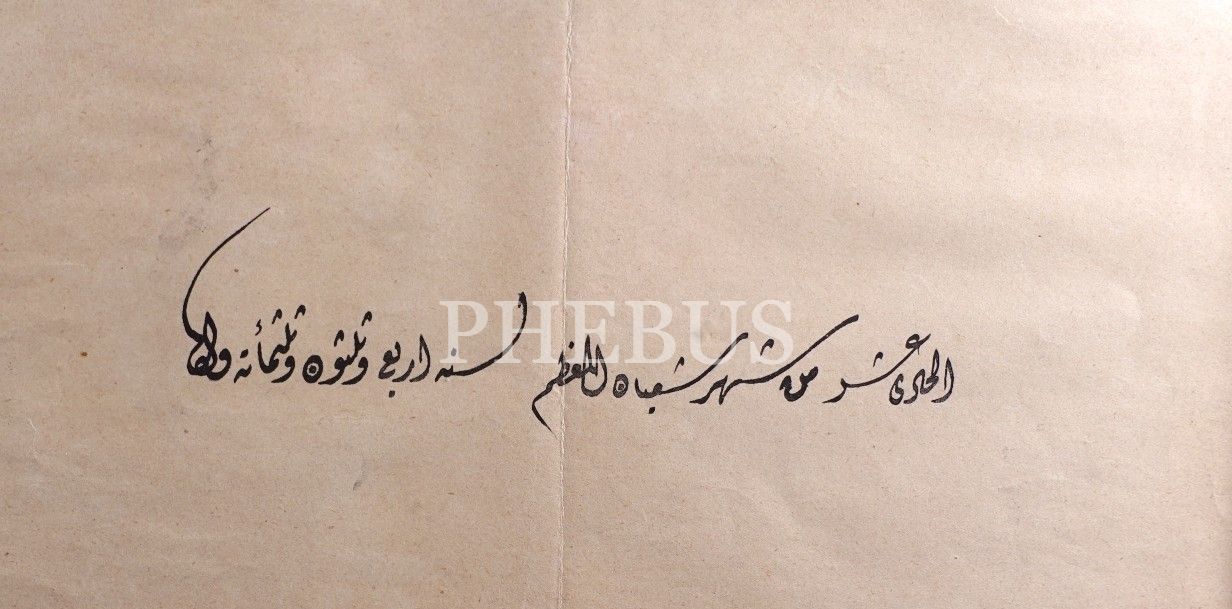 الحادى عشر من شهر شعبان المعظم لسنه اربع وثلثون وثلثمأته والف
PHEBUS